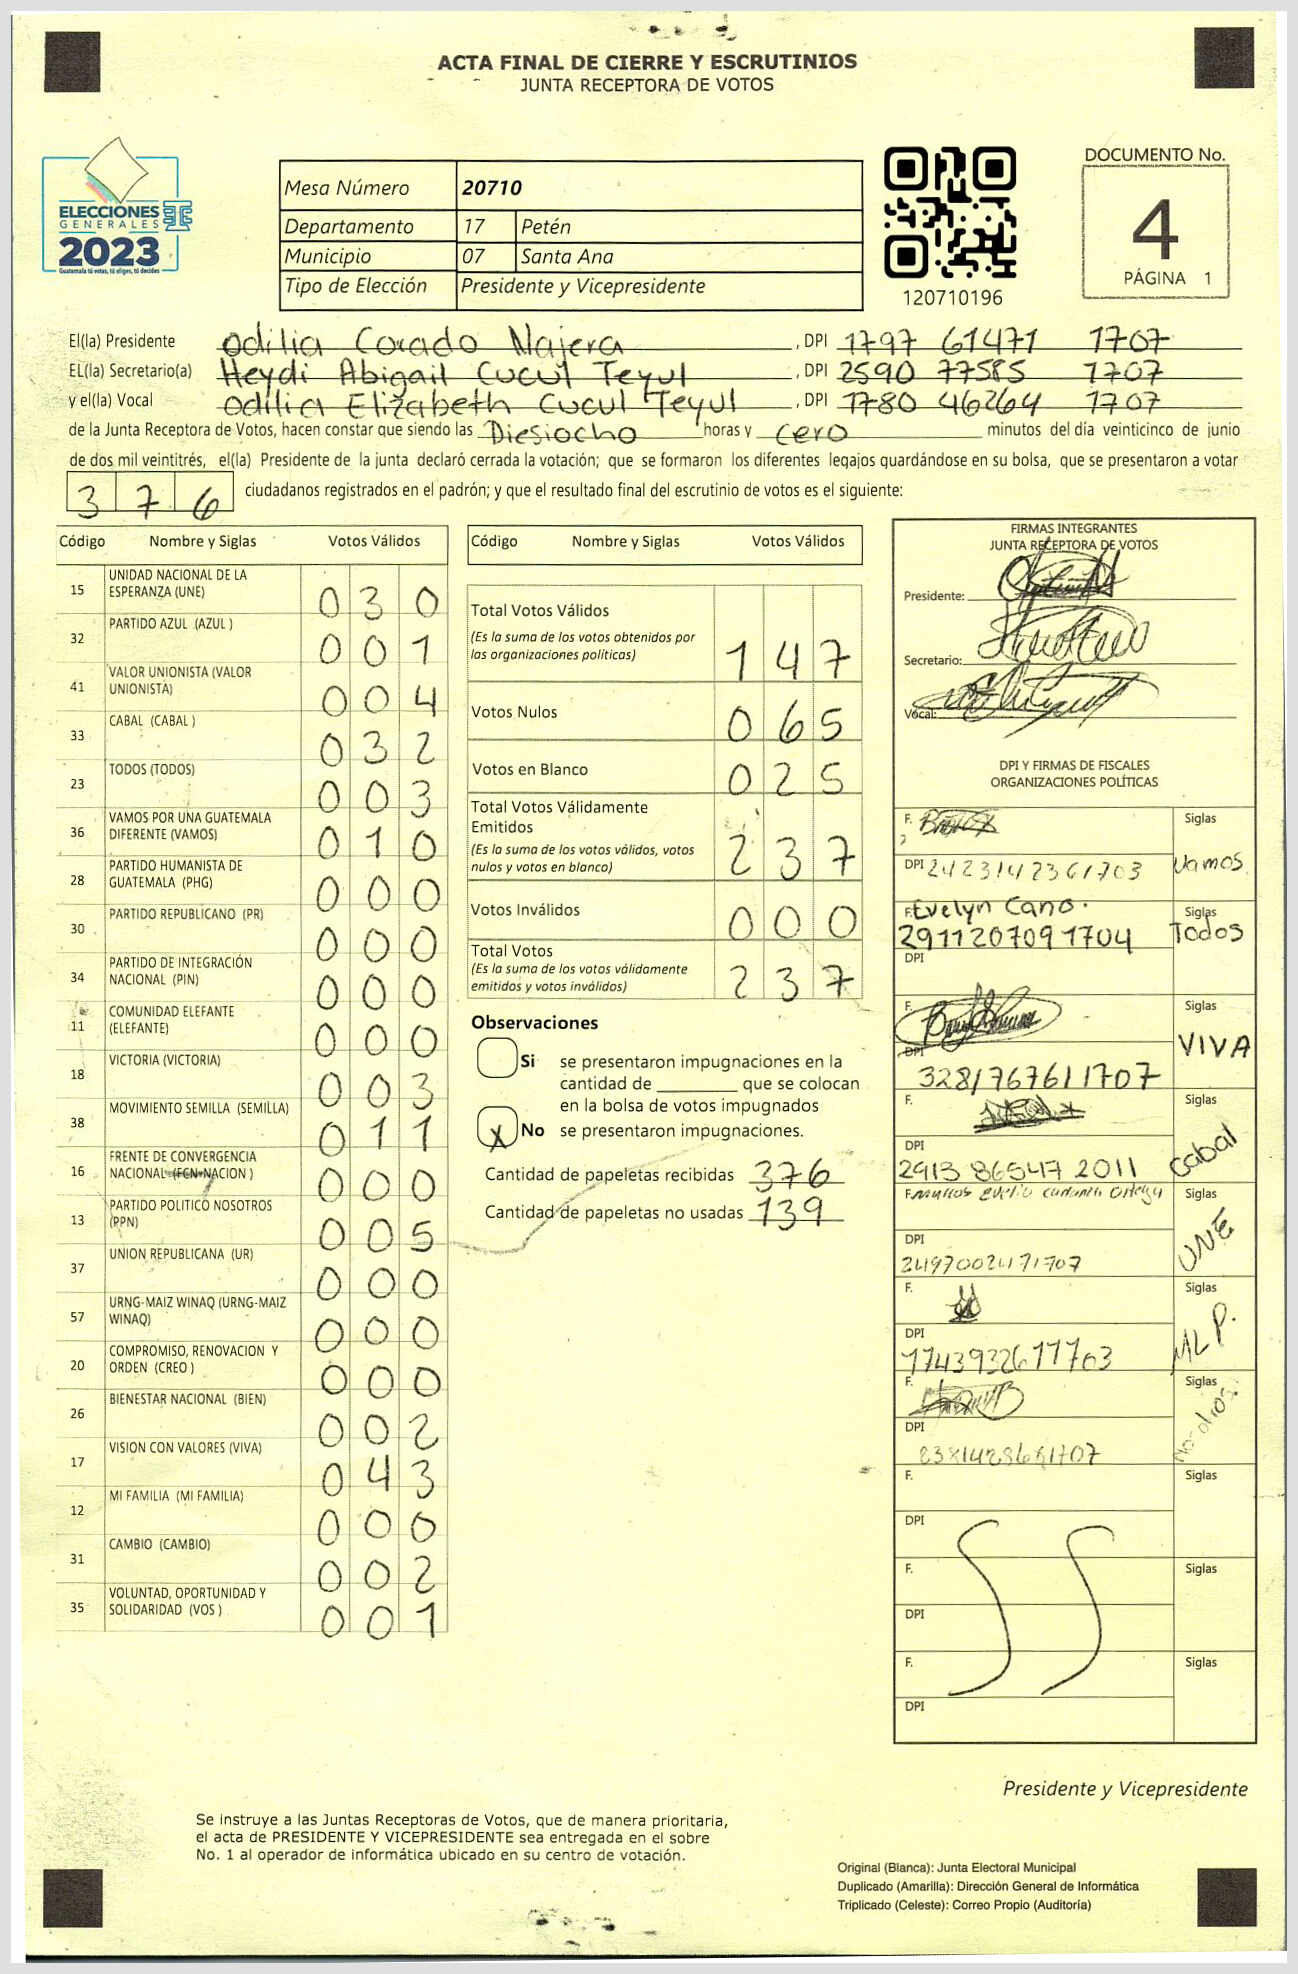 ACTA FINAL DE CIERRE Y ESCRUTINIOS
JUNTA RECEPTORA DE VOTOS
ELECCIONES
GENERALES
2023
Guatemala tú votas, tú eliges, tú decides
Mesa Número 20710
Departamento 17 Petén
Municipio 07 Santa Ana
Tipo de Elección Presidente y Vicepresidente
120710196
DOCUMENTO No.
4
PÁGINA 1
El(la) Presidente Odilia Corado Najera, DPI 1797 61471 1707
EL(la) Secretario(a) Heydi Abigail Cucul Teyul, DPI 2590 77585 1707
y el(la) Vocal Odilia Elizabeth Cucul Teyul, DPI 1780 46264 1707
de la Junta Receptora de Votos, hacen constar que siendo las Diesiocho horas y cero minutos del día veinticinco de junio
de dos mil veintitrés, el(la) Presidente de la junta declaró cerrada la votación; que se formaron los diferentes legajos guardándose en su bolsa, que se presentaron a votar
376 ciudadanos registrados en el padrón; y que el resultado final del escrutinio de votos es el siguiente:
Código Nombre y Siglas Votos Válidos
15 UNIDAD NACIONAL DE LA ESPERANZA (UNE) 030
32 PARTIDO AZUL (AZUL ) 001
41 VALOR UNIONISTA (VALOR UNIONISTA) 004
33 CABAL (CABAL ) 032
23 TODOS (TODOS) 003
36 VAMOS POR UNA GUATEMALA DIFERENTE (VAMOS) 010
28 PARTIDO HUMANISTA DE GUATEMALA (PHG) 000
30 PARTIDO REPUBLICANO (PR) 000
34 PARTIDO DE INTEGRACIÓN NACIONAL (PIN) 000
11 COMUNIDAD ELEFANTE (ELEFANTE) 000
18 VICTORIA (VICTORIA) 003
38 MOVIMIENTO SEMILLA (SEMILLA) 011
16 FRENTE DE CONVERGENCIA NACIONAL (FCN-NACION ) 000
13 PARTIDO POLITICO NOSOTROS (PPN) 005
37 UNION REPUBLICANA (UR) 000
57 URNG-MAIZ WINAQ (URNG-MAIZ WINAQ) 000
20 COMPROMISO, RENOVACION Y ORDEN (CREO ) 000
26 BIENESTAR NACIONAL (BIEN) 002
17 VISION CON VALORES (VIVA) 043
12 MI FAMILIA (MI FAMILIA) 000
31 CAMBIO (CAMBIO) 002
35 VOLUNTAD, OPORTUNIDAD Y SOLIDARIDAD (VOS ) 001
Código Nombre y Siglas Votos Válidos
Total Votos Válidos
(Es la suma de los votos obtenidos por
las organizaciones politicas) 147
Votos Nulos 065
Votos en Blanco 025
Total Votos Válidamente
Emitidos
(Es la suma de los votos válidos, votos
nulos y votos en blanco) 237
Votos Inválidos 000
Total Votos
(Es la suma de los votos válidamente
emitidos y votos inválidos) 237
Observaciones
Si se presentaron impugnaciones en la
cantidad de ________ que se colocan
en la bolsa de votos impugnados
X No se presentaron impugnaciones.
Cantidad de papeletas recibidas 376
Cantidad de papeletas no usadas 139
FIRMAS INTEGRANTES
JUNTA RECEPTORA DE VOTOS
Presidente:
Secretario:
Vocal:
DPI Y FIRMAS DE FISCALES
ORGANIZACIONES POLÍTICAS
F. Siglas
DPI 2423142361703 Vamos
F. Evelyn Cano. Siglas
2911207091704 Todos
DPI
F. Siglas
DPI VIVA
3281767611707
F. Siglas
DPI
2913 86547 2011 Cabal
F. Siglas
DPI UNE
2497002471707
F. Siglas
DPI MLP.
1743932611703
F. Siglas
DPI
F. Siglas
DPI
F. Siglas
DPI
F. Siglas
DPI
Presidente y Vicepresidente
Se instruye a las Juntas Receptoras de Votos, que de manera prioritaria,
el acta de PRESIDENTE Y VICEPRESIDENTE sea entregada en el sobre
No. 1 al operador de informática ubicado en su centro de votación.
Original (Blanca): Junta Electoral Municipal
Duplicado (Amarilla): Dirección General de Informática
Triplicado (Celeste): Correo Propio (Auditoría)